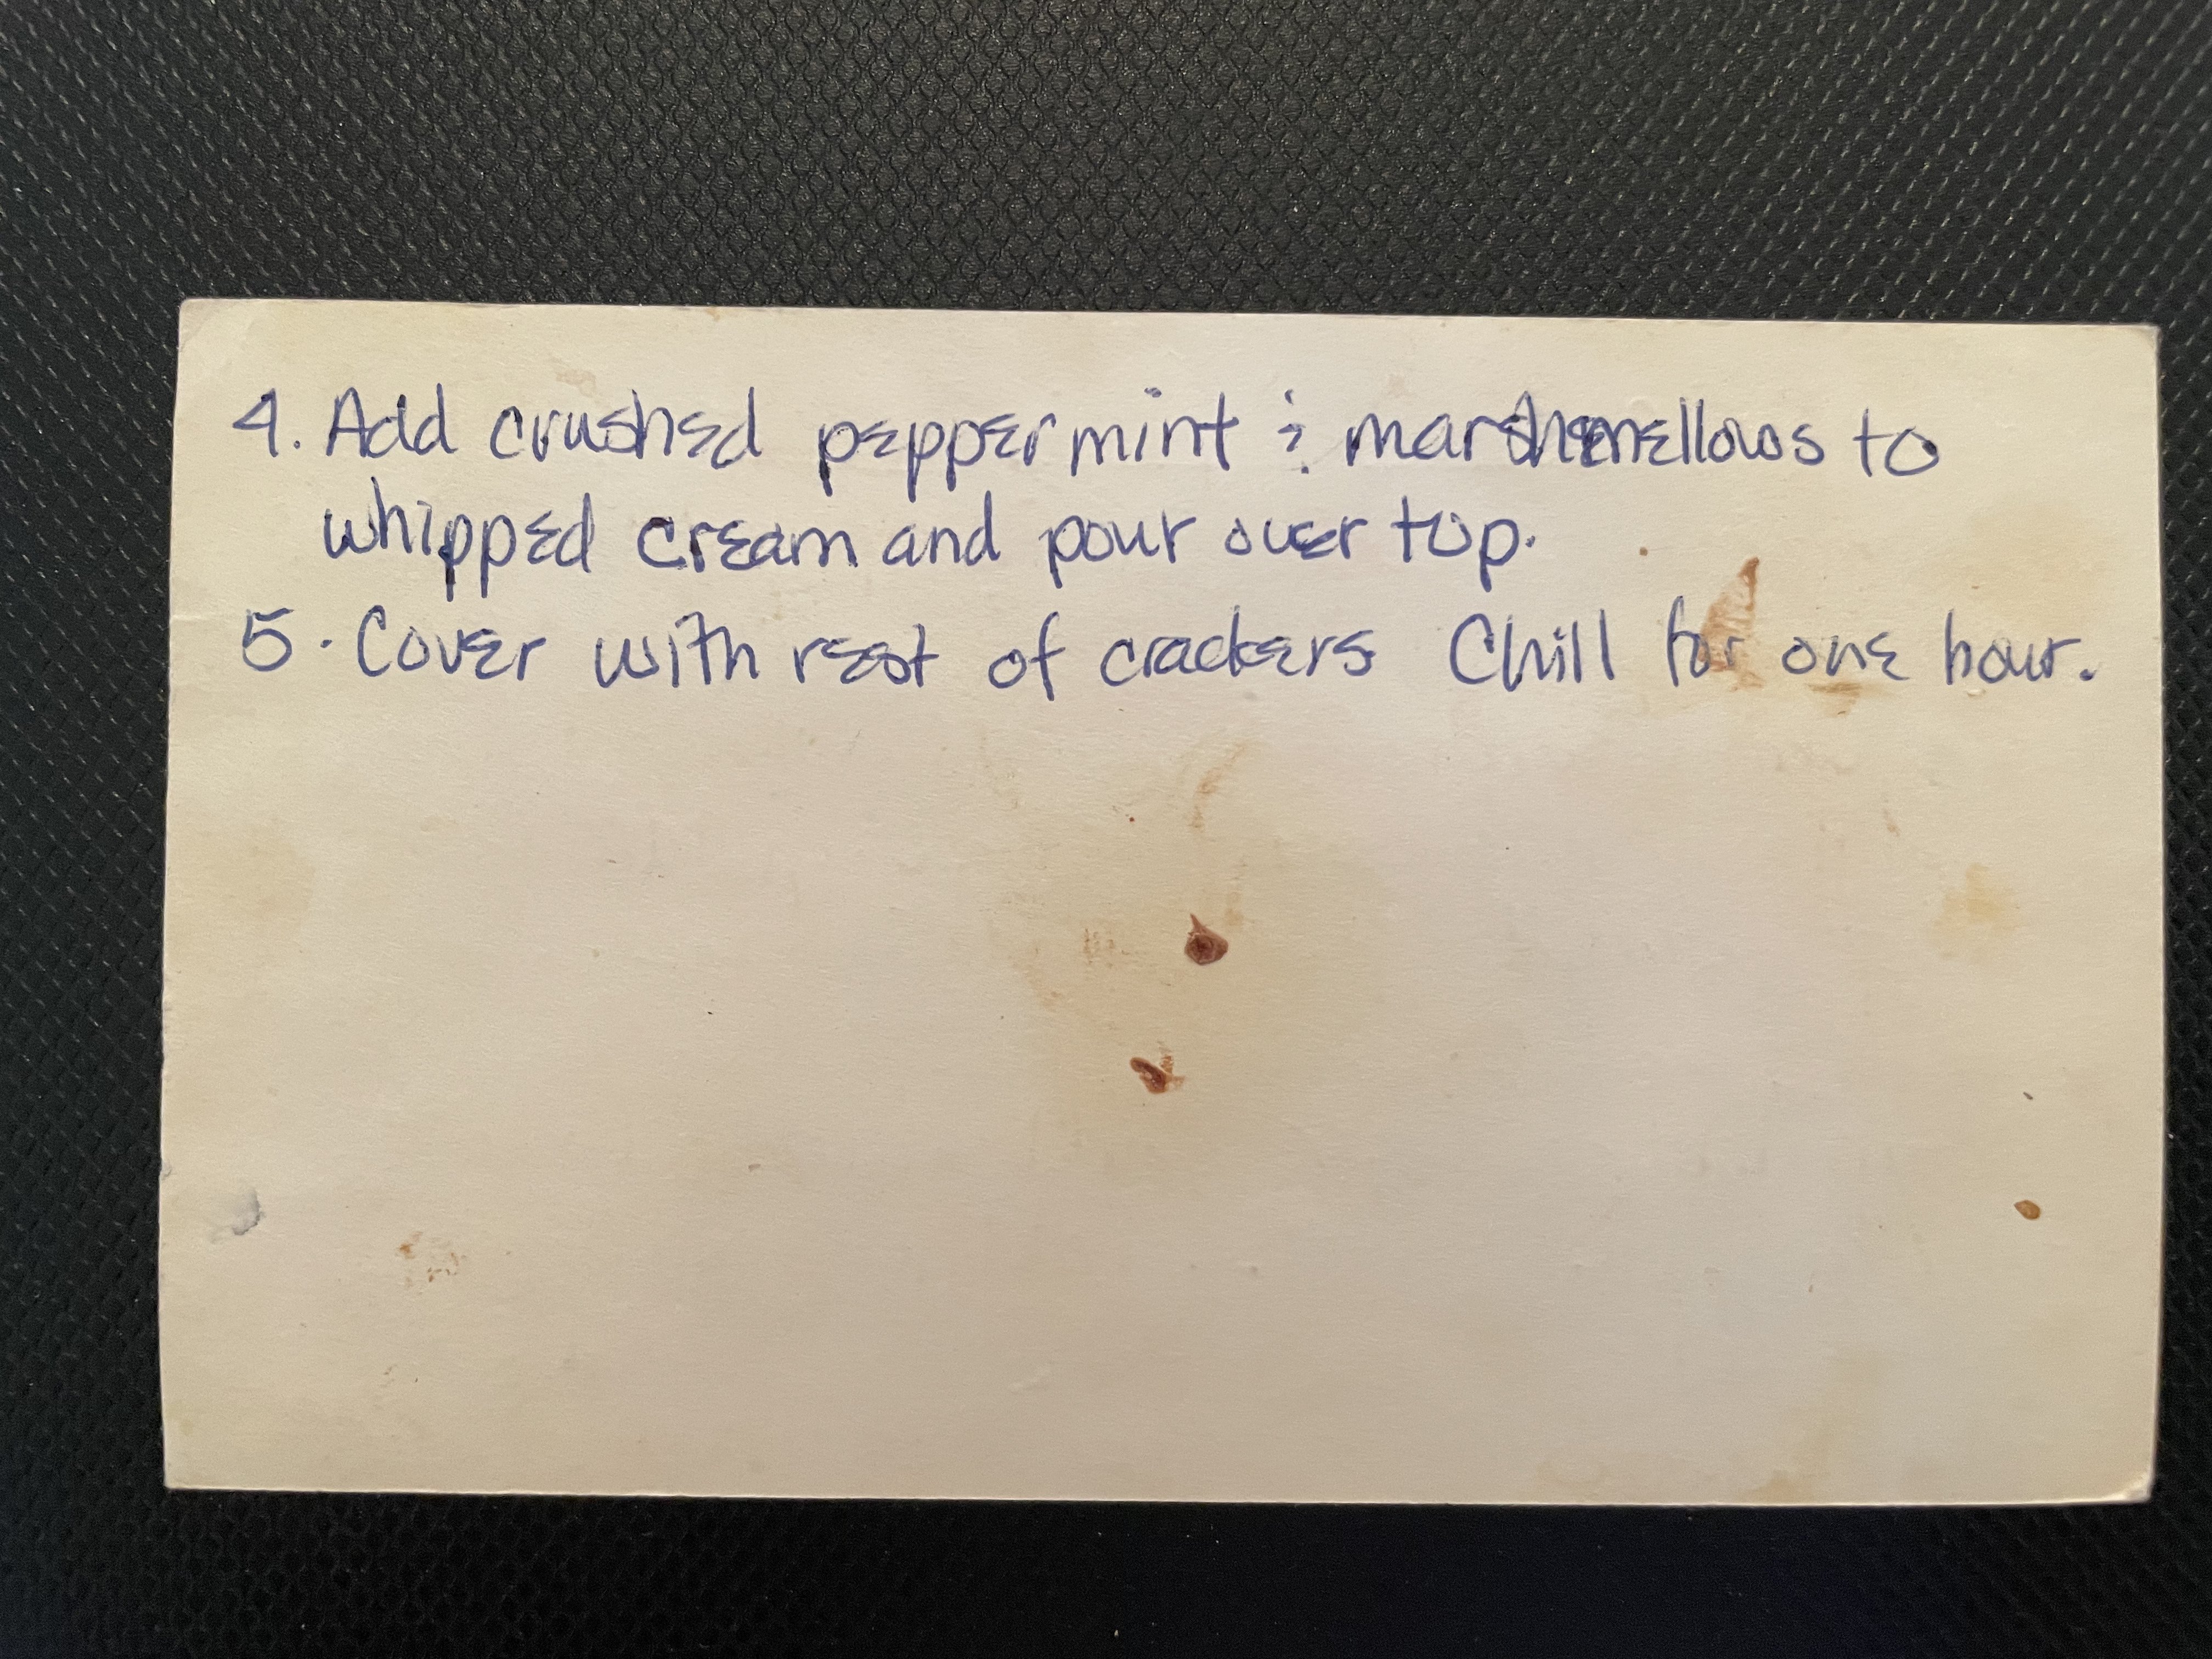 4. Add crushed peppermint & marshmellows to
whipped cream and pour over top.
5. Cover with rest of crackers Chill for one hour.